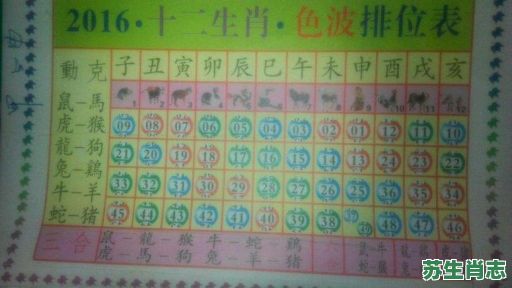 2016·十二生肖·色波排位表
動 克 子 丑 寅 卯 辰 巳 午 未 申 酉 戌 亥
鼠-馬 1 2 3 4 5 6 7 8 9 10 11 12
虎-猴 09 08 07 06 05 04 03 02 01 12 11 10
龍-狗 21 20 19 18 17 16 15 14 13 24 23 22
兔-鷄 33 32 31 30 29 28 27 26 25 36 35 34
牛-羊 45 44 43 42 41 40 39 38 37 49 48 47 46
蛇-猪
三合 鼠 龍 猴 牛 蛇 鷄
虎 馬 狗 兔 羊 猪
苏生肖志